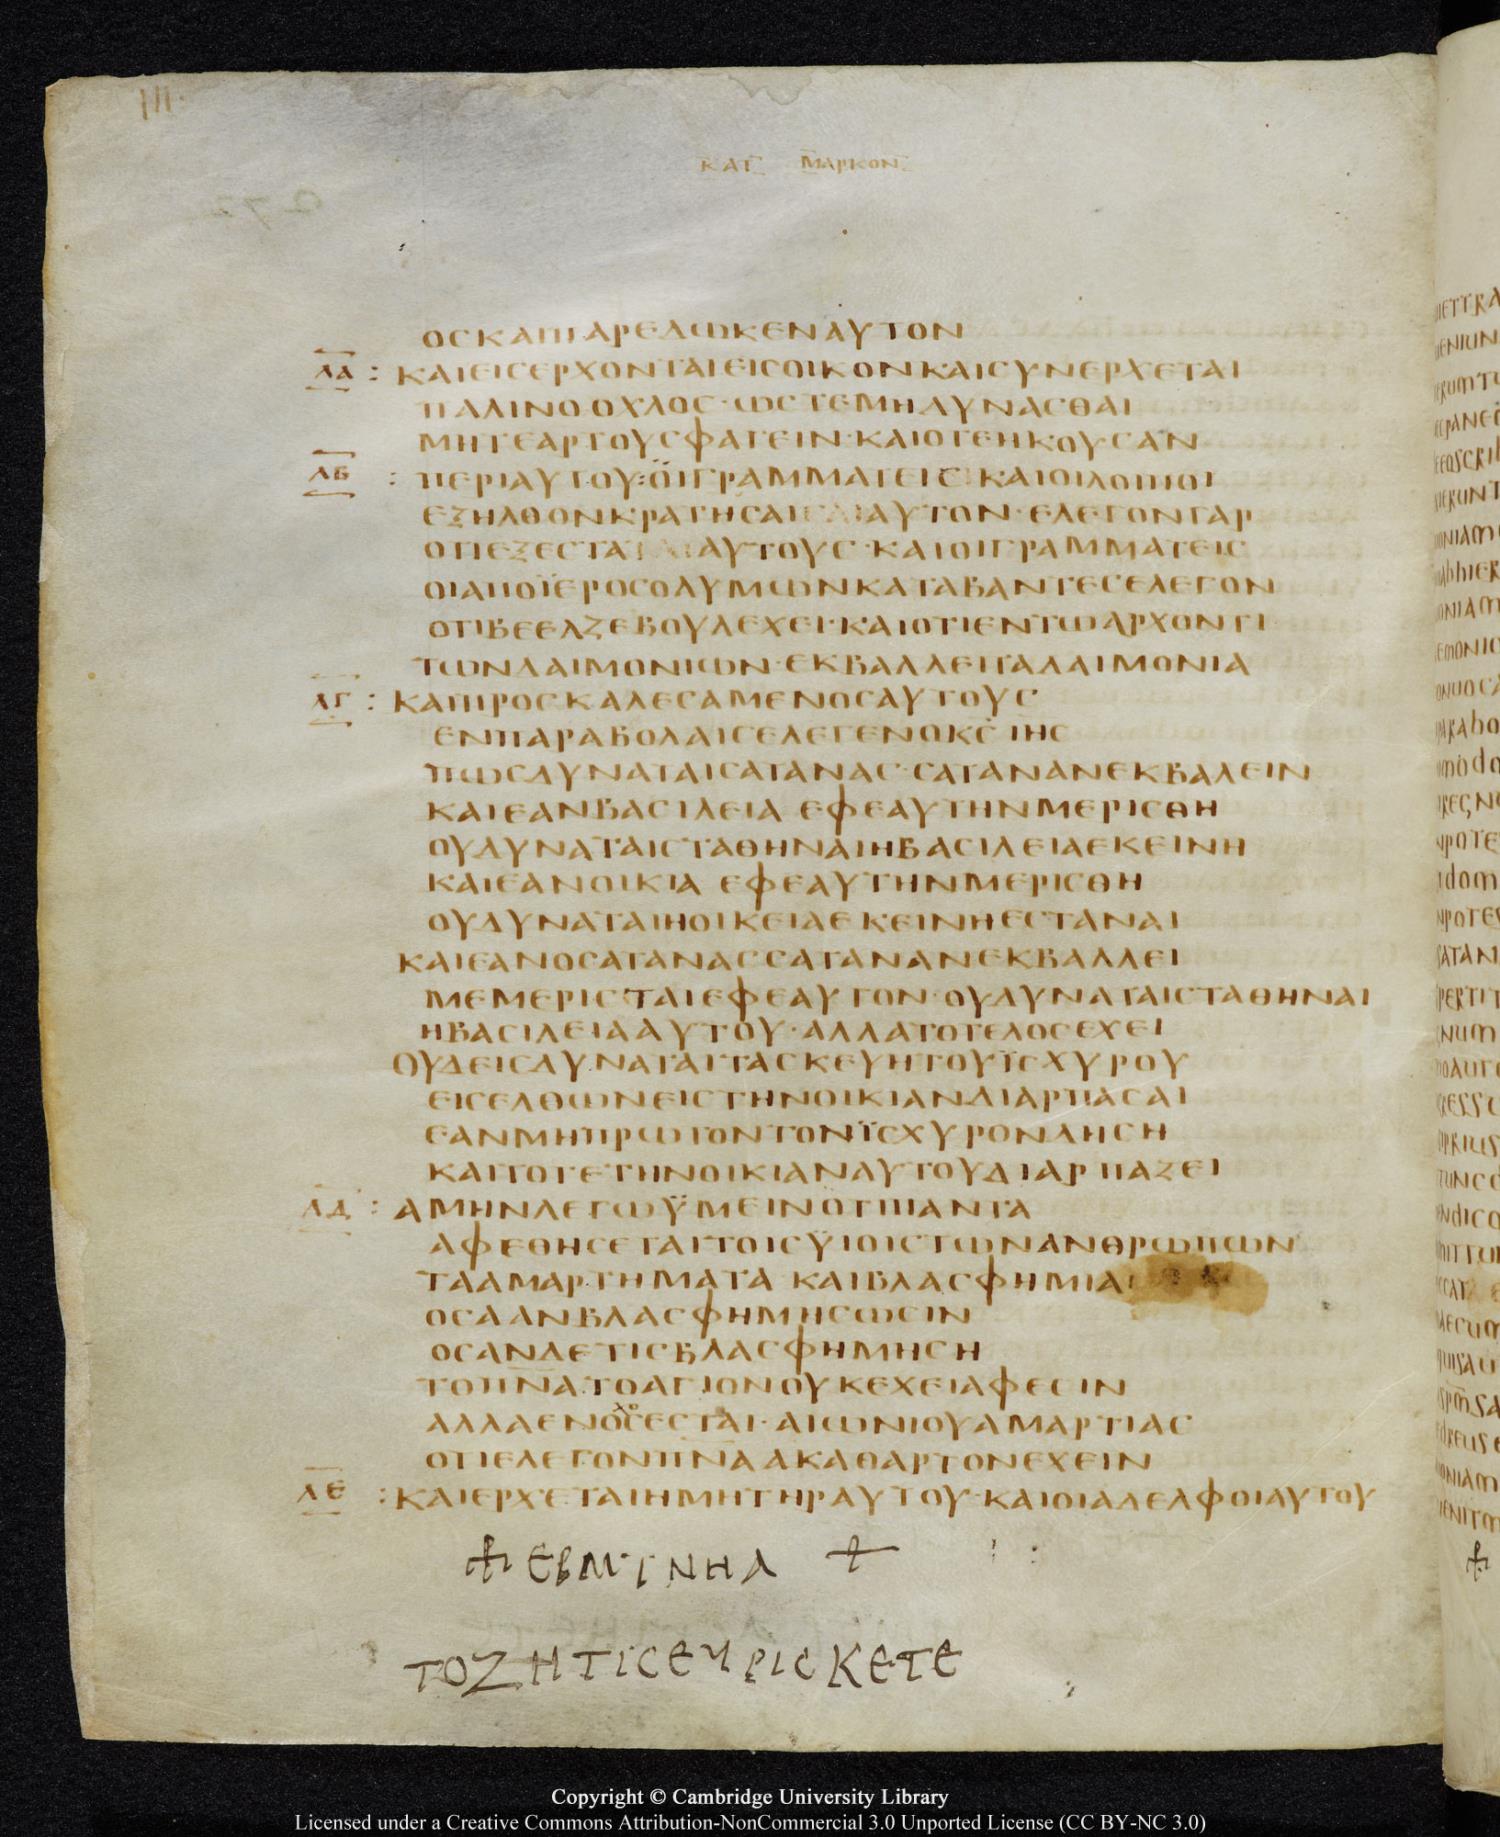 ΚΑΤ ΜΑΡΚΟΝ
ΟСΚΑΙΠΑΡΕΔΩΚΕΝΑΥΤΟΝ
ΛΑ : ΚΑΙΕΙСΕΡΧΟΝΤΑΙΕΙСΟΙΚΟΝΚΑΙСΥΝΕΡΧΕΤΑΙ
ΠΑΛΙΝΟΟΧΛΟС·ΩСΤΕΜΗΔΥΝΑСΘΑΙ
ΜΗΤΕΑΡΤΟΥСΦΑΓΕΙΝ·ΚΑΙΟΤΕΗΚΟΥСΑΝ
ΛΒ : ΠΕΡΙΑΥΤΟΥ:ΟΙΓΡΑΜΜΑΤΕΙС ΚΑΙΟΙΛΟΙΠΟΙ
ΕΞΗΛΘΟΝΚΡΑΤΗСΑΙ ΑΥΤΟΝ·ΕΛΕΓΟΝΓΑΡ
ΟΤΙΕΞΕСΤΑΙ ΑΥΤΟΥС·ΚΑΙΟΙΓΡΑΜΜΑΤΕΙС
ΟΙΑΠΟΪΕΡΟСΟΛΥΜΩΝΚΑΤΑΒΑΝΤΕСΕΛΕΓΟΝ
ΟΤΙΒΕΕΛΖΕΒΟΥΛΕΧΕΙ·ΚΑΙΟΤΙΕΝΤΩΑΡΧΟΝΤΙ
ΤΩΝΔΑΙΜΟΝΙΩΝ·ΕΚΒΑΛΛΕΙΤΑΔΑΙΜΟΝΙΑ
ΛΓ : ΚΑΙΠΡΟСΚΑΛΕСΑΜΕΝΟСΑΥΤΟΥС
ΕΝΠΑΡΑΒΟΛΑΙСΕΛΕΓΕΝΟΚ̅С̅ Ι̅Η̅С̅
ΠΩСΔΥΝΑΤΑΙСΑΤΑΝΑС·СΑΤΑΝΑΝΕΚΒΑΛΕΙΝ
ΚΑΙΕΑΝΒΑСΙΛΕΙΑ ΕΦΕΑΥΤΗΝΜΕΡΙСΘΗ
ΟΥΔΥΝΑΤΑΙСΤΑΘΗΝΑΙΗΒΑСΙΛΕΙΑΕΚΕΙΝΗ
ΚΑΙΕΑΝΟΙΚΙΑ ΕΦΕΑΥΤΗΝΜΕΡΙСΘΗ
ΟΥΔΥΝΑΤΑΙΗΟΙΚΕΙΑΕΚΕΙΝΗΕСΤΑΝΑΙ
ΚΑΙΕΑΝΟСΑΤΑΝΑССΑΤΑΝΑΝΕΚΒΑΛΛΕΙ
ΜΕΜΕΡΙСΤΑΙΕΦΕΑΥΤΟΝ·ΟΥΔΥΝΑΤΑΙСΤΑΘΗΝΑΙ
ΗΒΑСΙΛΕΙΑΑΥΤΟΥ·ΑΛΛΑΤΟΤΕΛΟСΕΧΕΙ
ΟΥΔΕΙСΔΥΝΑΤΑΙΤΑСΚΕΥΗΤΟΥΪСΧΥΡΟΥ
ΕΙСΕΛΘΩΝΕΙСΤΗΝΟΙΚΙΑΝΔΙΑΡΠΑСΑΙ
ΕΑΝΜΗΠΡΩΤΟΝΤΟΝΪСΧΥΡΟΝΔΗСΗ
ΚΑΙΤΟΤΕΤΗΝΟΙΚΙΑΝΑΥΤΟΥΔΙΑΡΠΑΖΕΙ
ΛΔ : ΑΜΗΝΛΕΓΩΫΜΕΙΝΟΤΙΠΑΝΤΑ
ΑΦΕΘΗСΕΤΑΙΤΟΙСΫΙΟΙСΤΩΝΑΝΘΡΩΠΩΝ
ΤΑΑΜΑΡΤΗΜΑΤΑ ΚΑΙΒΛΑСΦΗΜΙΑΙ
ΟСΑΑΝΒΛΑСΦΗΜΗСΩСΙΝ
ΟСΑΝΔΕΤΙСΒΛΑСΦΗΜΗСΗ
ΤΟΠ̅Ν̅Α̅·ΤΟΑΓΙΟΝΟΥΚΕΧΕΙΑΦΕСΙΝ
ΑΛΛΑΕΝΟΧΟСΕСΤΑΙ·ΑΙΩΝΙΟΥΑΜΑΡΤΙΑС
ΟΤΙΕΛΕΓΟΝΠ̅Ν̅Α̅ΑΚΑΘΑΡΤΟΝΕΧΕΙΝ
ΛΕ : ΚΑΙΕΡΧΕΤΑΙΗΜΗΤΗΡΑΥΤΟΥ·ΚΑΙΟΙΑΔΕΛΦΟΙΑΥΤΟΥ
ΤΟΖΗΤΙСΕΥΡΙСΚΕΤΕ
Copyright © Cambridge University Library
Licensed under a Creative Commons Attribution-NonCommercial 3.0 Unported License (CC BY-NC 3.0)